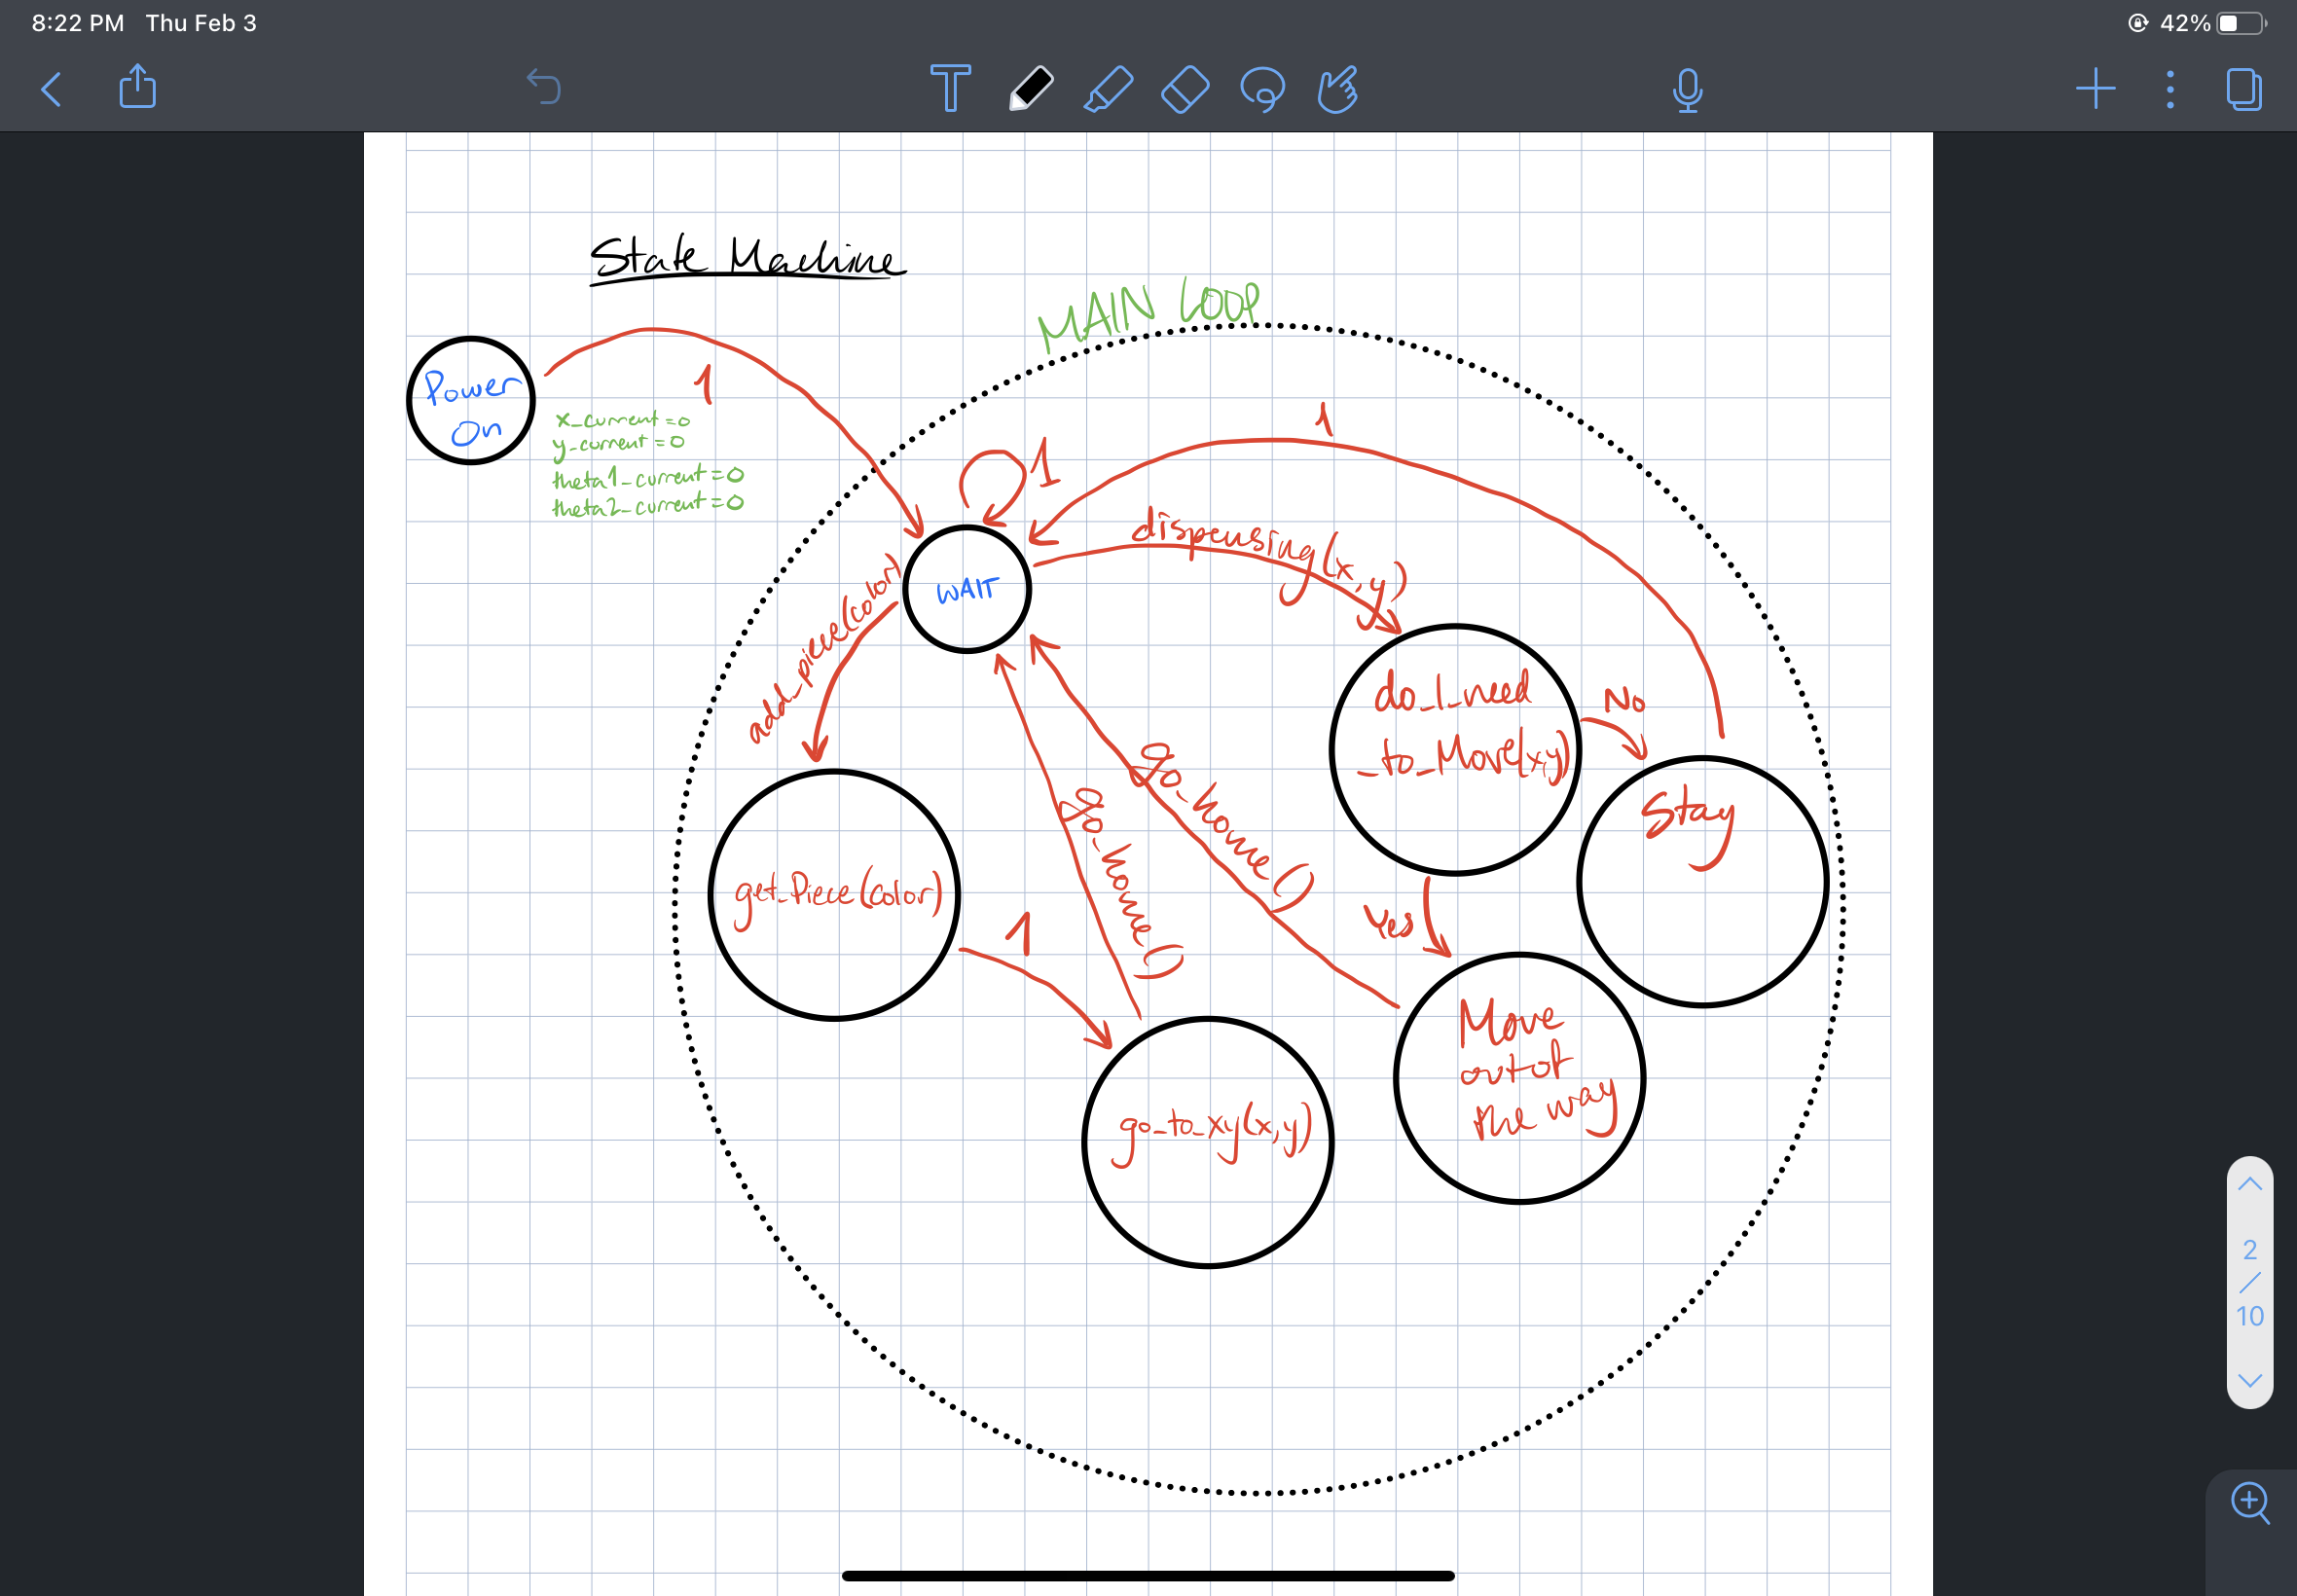 8:22 PM Thu Feb 3
42%
State Machine
MAIN LOOP
Power
On
1
x_current=0
y_current=0
theta1_current=0
theta2_current=0
1
1
dispensing(x,y)
WAIT
add_piece(color)
do_I_need
_to_Move(x,y)
No
Stay
go_home()
go_home()
get_Piece(color)
1
Yes
Move
out of
the way
go_to_xy(x,y)
2
/
10